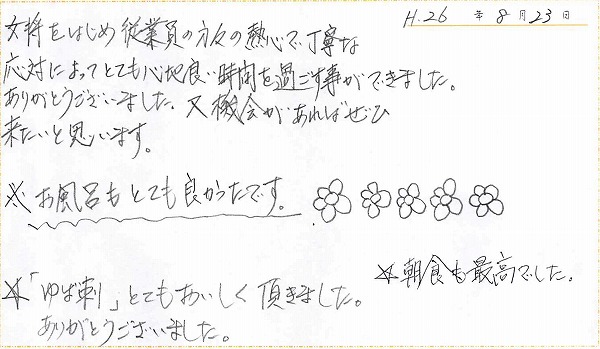 H.26 年 8月 23日
女将をはじめ従業員の方々の熱心で丁寧な
応対によってとても心地良い時間を過ごす事ができました。
ありがとうございました。又機会があればぜひ
来たいと思います。
※お風呂もとても良かったです。
※朝食も最高でした。
※「ゆば刺」とてもおいしく頂きました。
ありがとうございました。